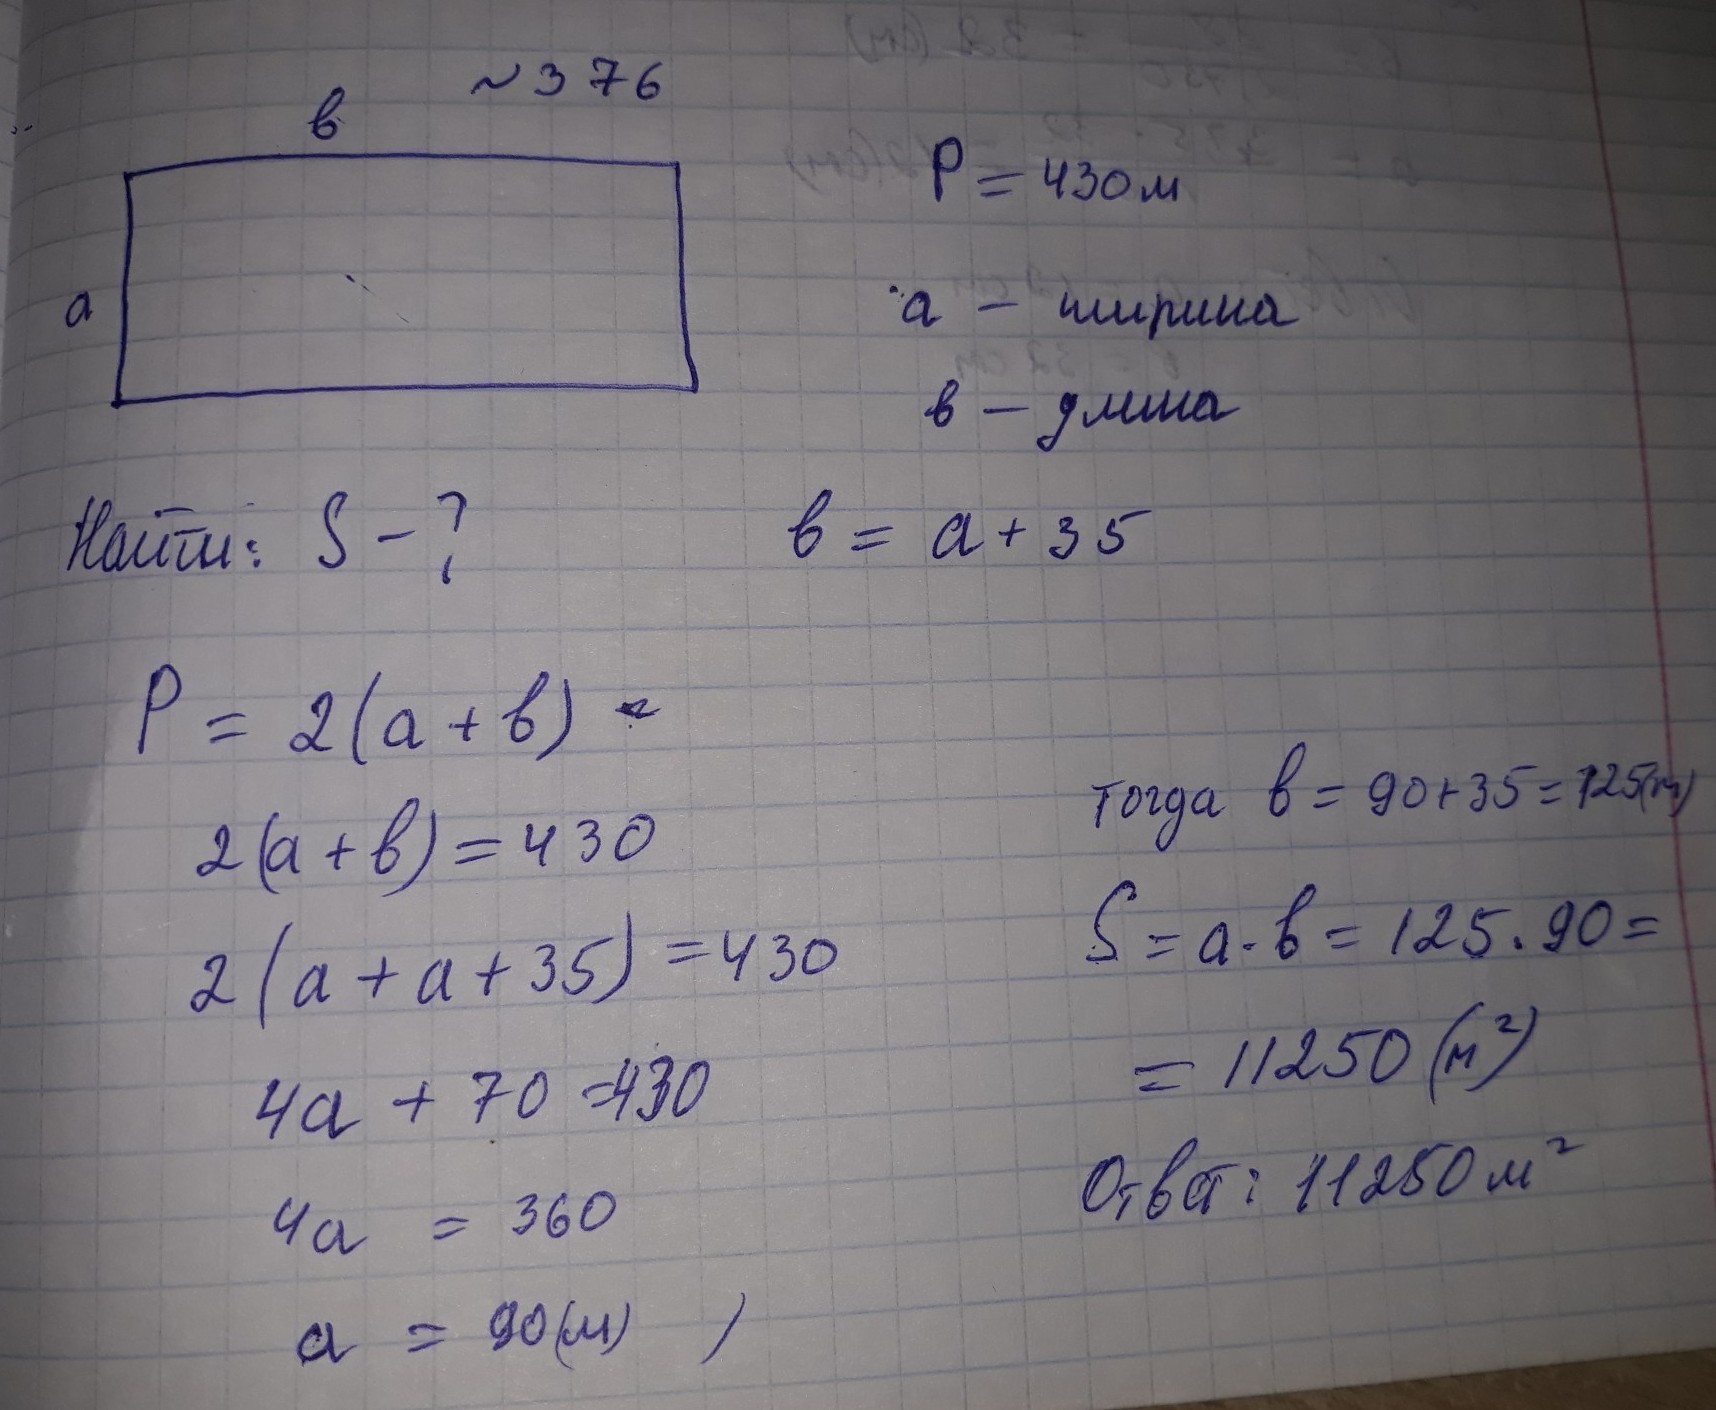 ~376
в
P = 430м
a
a – ширина
в – длина
Найти: S – ?
в = a + 35
P = 2(a + в)
2(a + в) = 430
2(a + a + 35) = 430
4a + 70 = 430
4a = 360
a = 90(м)
тогда в = 90+35 = 125(м)
S = a · в = 125 · 90 =
= 11250 (м²)
Ответ: 11250 м²